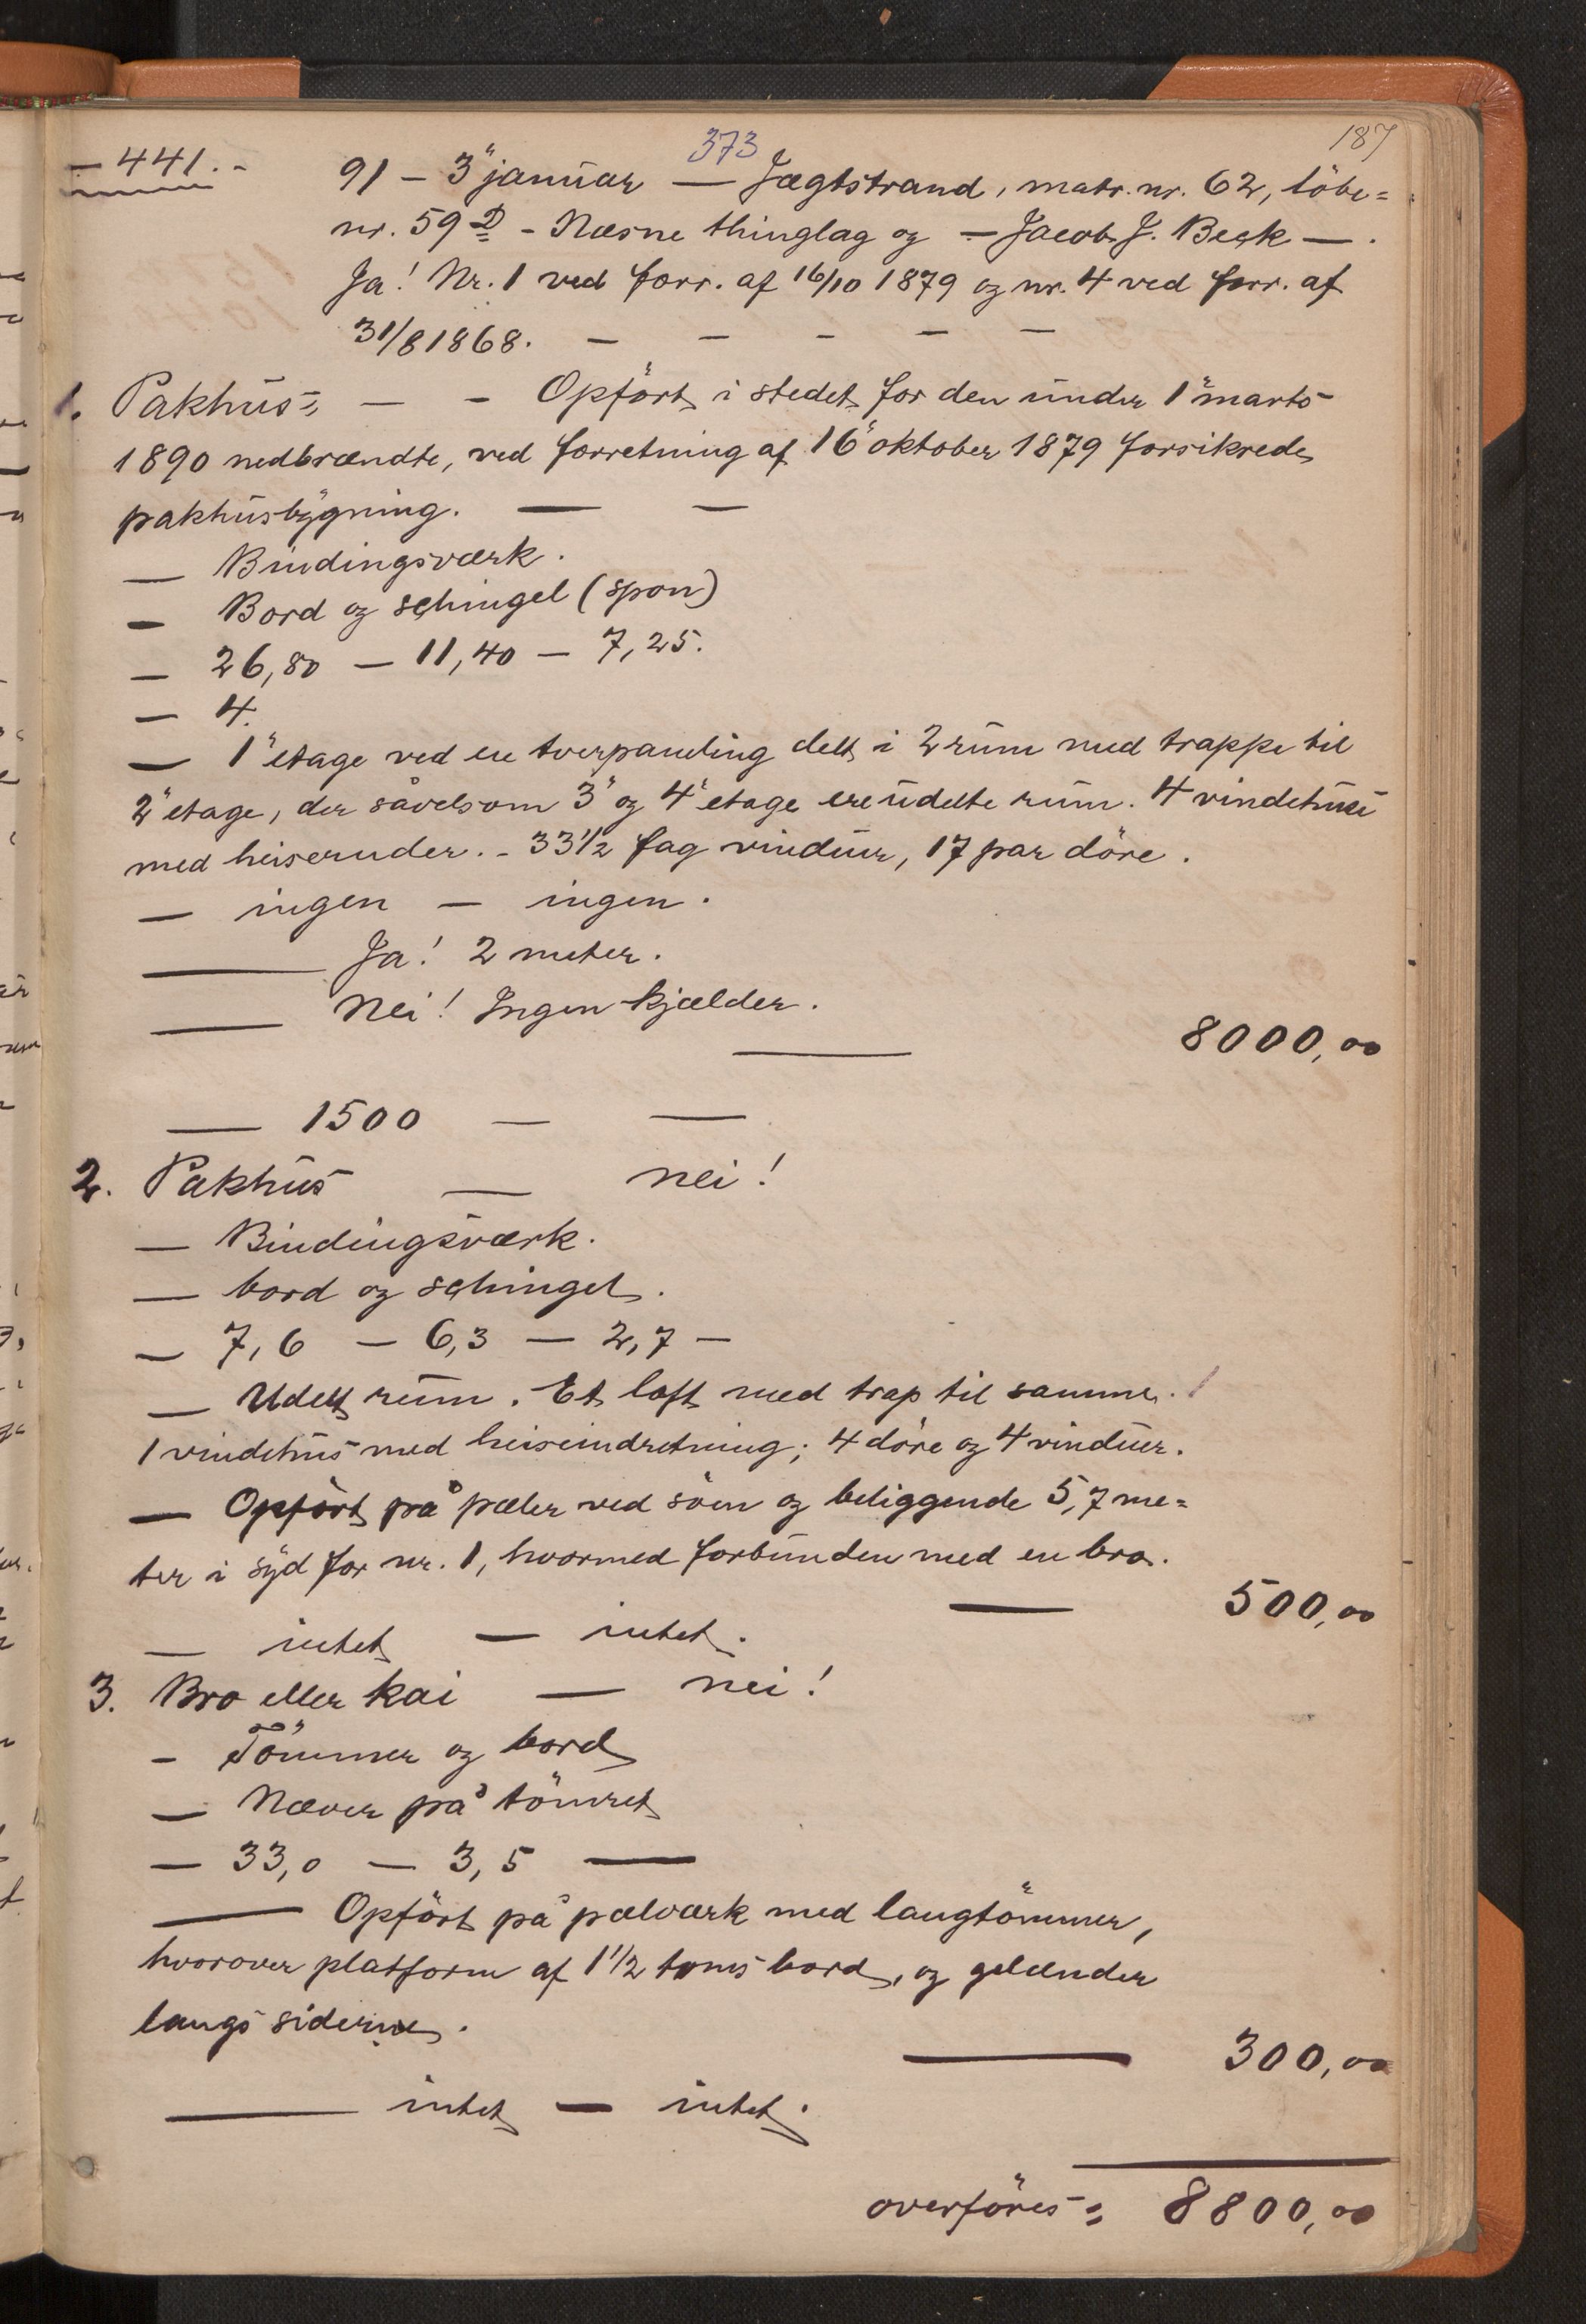 373
187
- 441. -
91 - 3" januar — Jægtstrand, matr. nr. 62, löbe=
nr. 59 D - Næsne thinglag og - Jacob J. Beck - .
Ja! Nr. 1 ved forr. af 16/10 1879 og nr. 4 ved forr. af
31/8 1868. - - - - -
1. Pakhus, — - Opfört i stedet for den under 1" marts
1890 nedbrændte, ved forretning af 16" oktober 1879 forsikrede
pakhusbygning. — —
— Bindingsværk.
— Bord og schingel (spon)
— 26,80 — 11,40 — 7,25.
— 4.
— 1" etage ved en tverpanding delt i 2 rum med trappe til
2" etage, der såvelsom 3" og 4" etage ere udelte rum. 4 vindehuse
med heiseruder. - 33 1/2 fag vinduer, 17 par döre.
— ingen — ingen.
— Ja! 2 meter.
— Nei! Ingen kjælder.
— 8000,00
— 1500 — —
2. Pakhus — nei!
— Bindingsværk.
— bord og schingel.
— 7,6 — 6,3 — 2,7 —
— Udelt rum. Et loft med trap til samme.
1 vindehus med heiseindretning; 4 döre og 4 vinduer.
— Opfört på pæler ved söen og beliggende 5,7 me=
ter i syd for nr. 1, hvormed forbunden med en bro.
— 500,00
— intet — intet.
3. Bro eller kai — nei!
- Tömmer og bord
— Næver på tömret
— 33,0 — 3,5 —
— Opfört på pælværk med langtömmer,
hvorover platform af 1 1/2 toms bord, og gelænder
langs siderne.
— 300,00
— intet — intet.
overföres = 8800,00